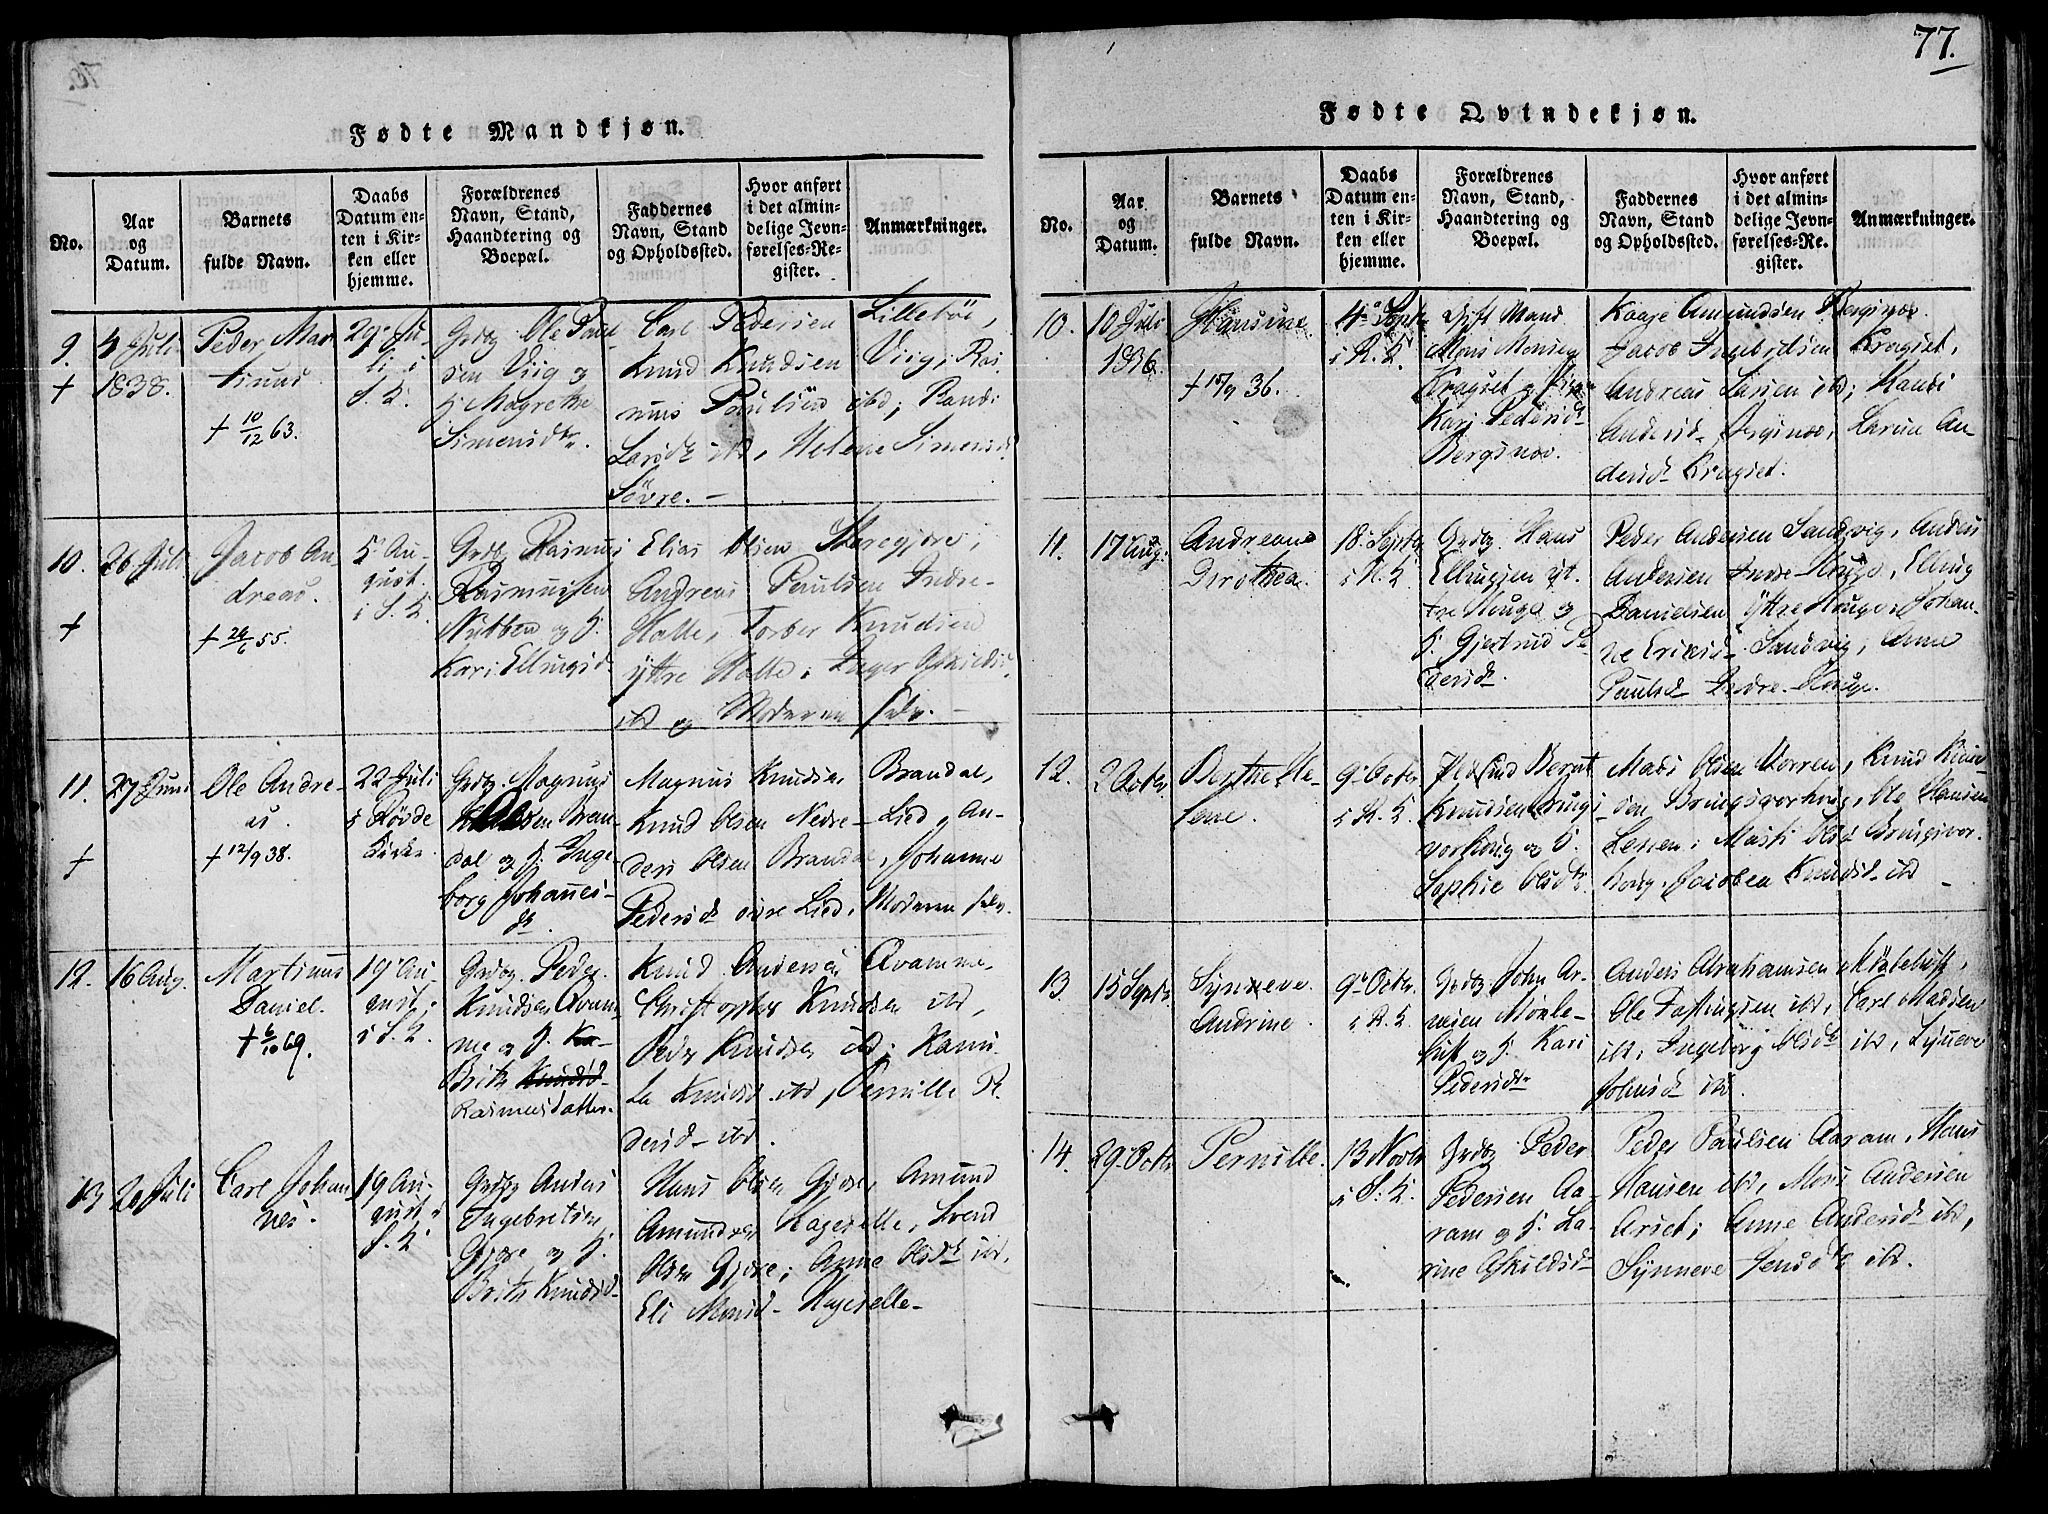 77.
Fødte Mandkjøn.
No.
Aar
og
Datum.
Barnets
fulde Navn.
Daabs
Datum en-
ten i Kir-
ken eller
hjemme.
Forældrenes
Navn, Stand,
Haandtering og
Boepæl.
Faddernes
Navn, Stand
og Opholdssted.
Hvor anført
i det almin-
delige Jevn-
førelses-Re-
gister.
Anmærkninger.
9.
†
4 Juli
1838.
Peder Mar
tinus
† 10/12 63.
29 Ju-
li i
S. K.
Grdbg Ole Paul
sen Viig og
H. Magrethe
Simensdtr.
Carl Pedersen Lillebøe,
Knud Knudsen Viig, Ras
mus Paulsen ibd; Randi
Larsd ibd, Helene Simensd
Søvre. -
10.
†
26 Juli
Jacob An-
dreas.
† 55.
5 Au-
gust.
i S. K.
Grdbg Rasmus
Rasmussen
Nubben og H.
Kari Ellingsd
Elias Olsen
Andreas Paulsen Indre-
Halle, Torber Knudsen
yttre Halle; Inger
ibd og Moderen selv. -
11.
†
27 Juni
Ole Andre-
as.
† 12/9 38.
22 Juli
i Røvde
Kirke
Grdbg. Magnus
Bran-
dal og H. Inge-
borg Johannes-
dr.
Magnus Knudsen Brandal,
Knud Olsen Nedre-Lied, An-
ders Olsen Brandal, Johanne
Pedersd øvre Lied, Moderen selv.
12.
16 Aug.
Martinus
Daniel.
† 6/10 69.
19 Au-
gust
i S. K.
Grdbg. Peder
Knudsen Qvam-
me og H. Ka-
Brithe Knudsd-
Rasmusdatter.
Knud Andersen Qvamme,
Christopher Knudsen ibd,
Peder Knudsen ibd; Rasmi-
La Knudsd ibd, Pernille P.
dersd ibd.
13
20 Juli
Carl Johan
nes.
19 Au-
gust i
S. K.
Grdbg Anders
Ingebretsen
Gjære og H.
Brithe Knudsd
Hans Olsen Gjære, Amund
Amundsen Hageselle, Svend
Olsen Gjære; Anne Olsdtr ibd,
Eli Monsd Hageselle-
Fødte Qvindekjøn.
No.
Aar
og
Datum.
Barnets
fulde Navn.
Daabs
Datum en-
ten i Kir-
ken eller
hjemme.
Forældrenes
Navn, Stand,
Haandtering og
Boepæl.
Faddernes
Navn, Stand
og Opholdssted.
Hvor anført
i det almin-
delige Jevn-
førelses-Re-
gister.
Anmærkninger.
10.
10 Juli
1836.
Hansine
36.
4 Septbr
i R. K.
Gift Mand
Mons Monsen
Kragset og Pigen
Kari Pedersd
Bergsnæv.
Kaare Amundsen Bergsnæv
Jacob Ingebrigtsen Kragset,
Andreas Larsen ibd; Randi
Andersd Bergsnæv, Karine An-
dersd Kragset.
11.
17 Aug.
Andreana
Dorothea
18. Septbr
i R. K.
Grdbg. Hans
Ellingsen yt-
tre Houge og
H. Gjertrud Pe-
dersd
Peder Andersen Sandvig, Anders
Andersen Indre-Houge, Elling
Danielsen yttre Houge; Johan-
ne Eriksd Sandvig, Anne
Paulsd Indre-Houge.
12.
2 Octbr.
Berthe He-
lene.
9 Octbr
i R. K.
Bernt
Knudsen Brings-
vorhoug og H.
Sophie Olsdtr.
Mads Olsen Morren, Knud Knud-
sen Bringsvorhoug, Ole Hansen
Olsd Bringsvor-
houg, Jacobea Knudsd ibd -
13.
15 Septbr
Synneve
Andrine.
9 Octbr.
i R. K.
Grdbg John Ar-
nesen Mokle-
bust og H. Kari
Pedersdtr
Anders Abrahamsen Møklebust,
Ole Fastingsen ibd, Carl Madsen
ibd; Ingeborg Olsdtr ibd, Synneve
Johnsd ibd.
14.
29. Octbr
Pernille.
13 Novbr
i S. K.
Grdbg Peder
Pedersen Aa-
ram og H. La-
rine Askildsdr
Peder Paulsen Aaram, Hans
Hansen ibd, Mons Andersen
Ariet; Anne Andersd ibd,
Synneve Jensdtr ibd.